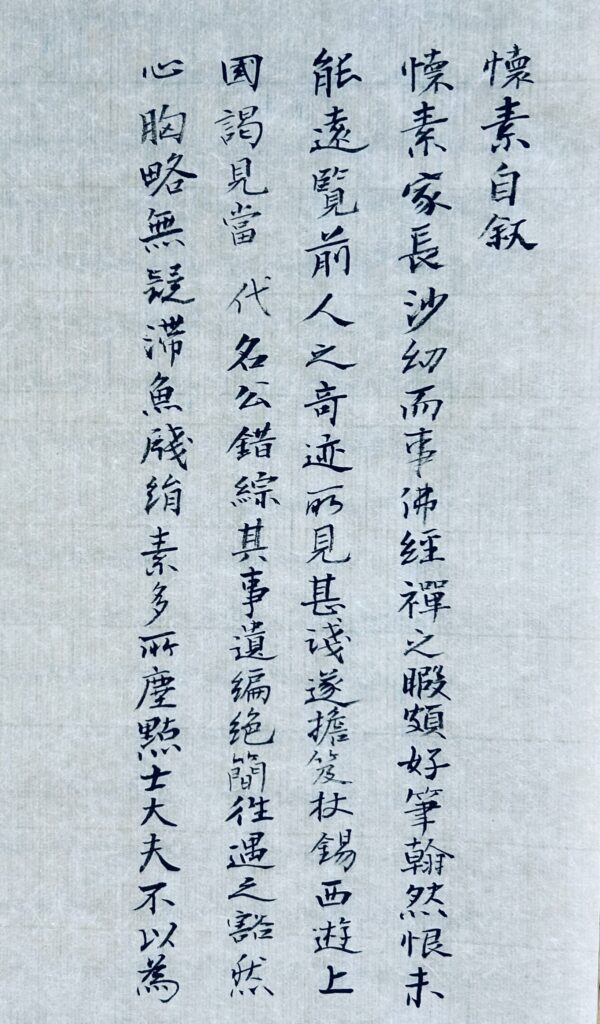 懷素自叙
懷素家長沙幼而事佛經禪之暇頗好筆翰然恨未
能遠覽前人之奇迹所見甚淺遂擔笈杖錫西遊上
國謁見當代名公錯綜其事遺編絶簡往遇之豁然
心胸略無疑滯魚牋絹素多所塵點士大夫不以為